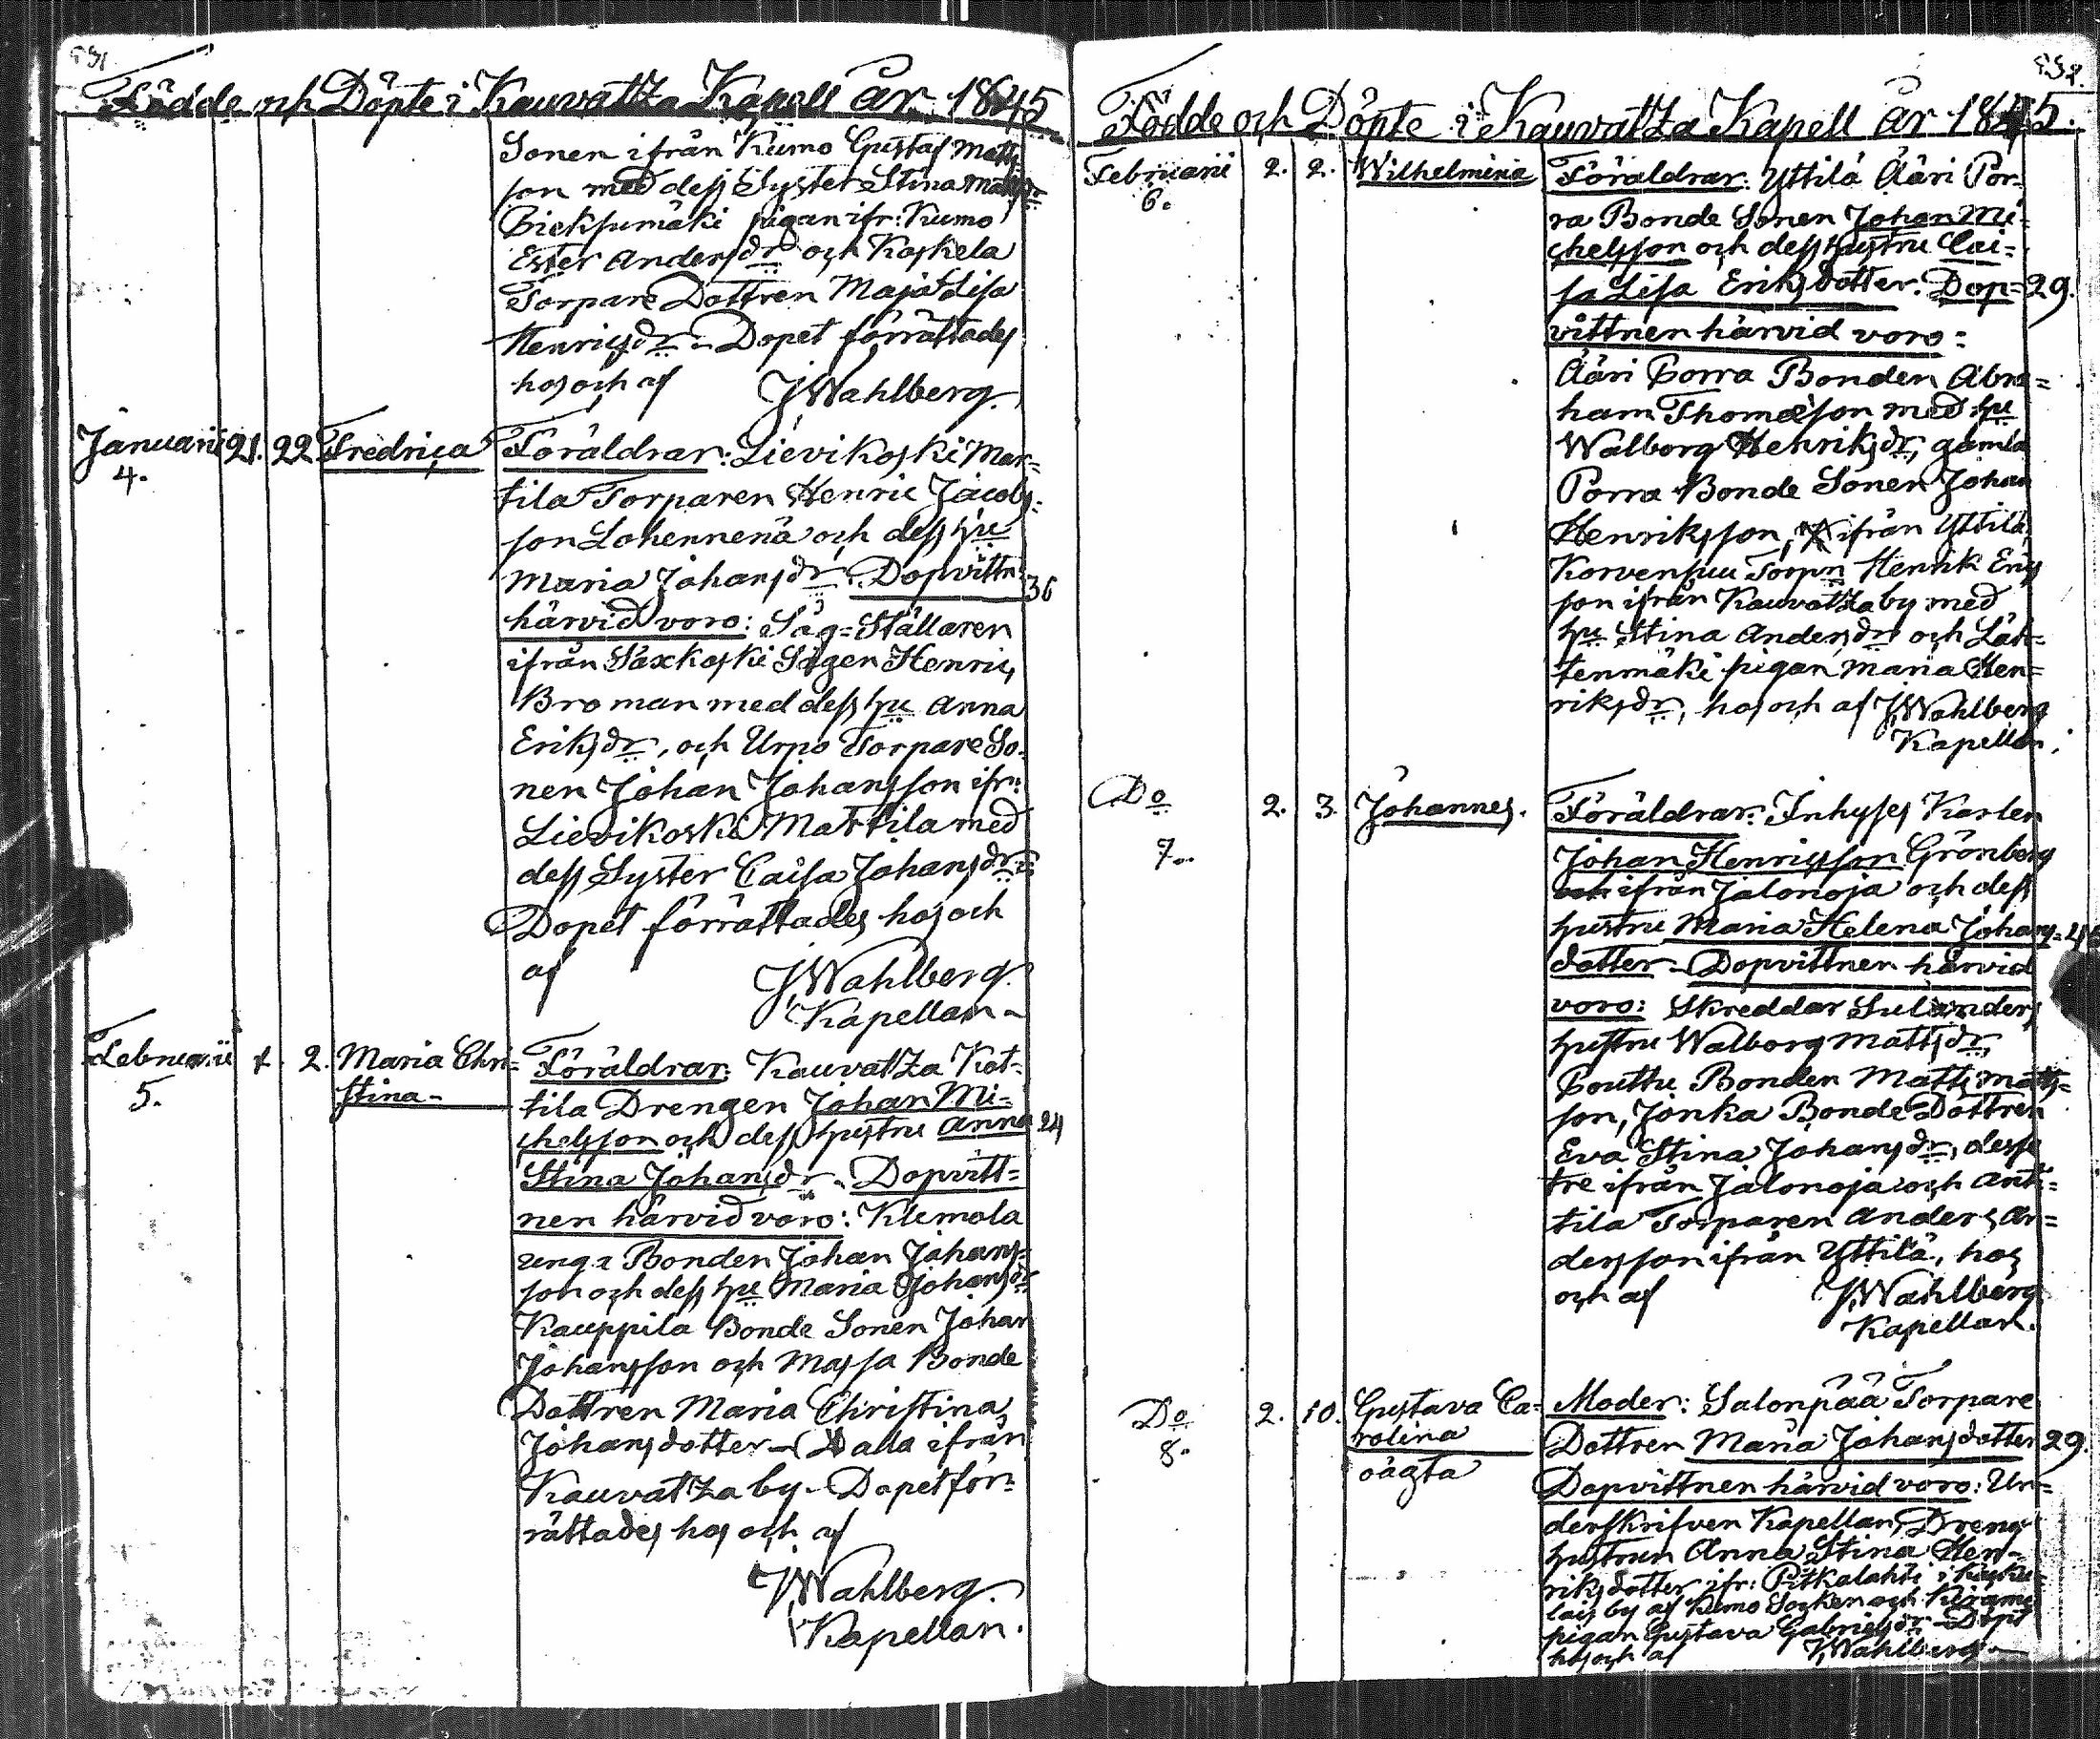 Födde och Döpte i Kauvatza Kapell år 1845
Sonen ifrån Kumo Gustaf Matts
son med dess Syster Stina Mattsdr
pigan ifr: Kumo
Ester Andersdr och Koskela
Torpare Dottren Maja Lisa
Henricsdr - Dopet förrättades
hos och af JWahlberg.
Januarii 21. 22 Fredrica Föräldrar: Lievikoski Mar=
4. tila Torparen Henric Jacobs=
son Lohennenä och dess hu
Maria Johansdr. Dopvittn: 36
härvid voro: Såg=Ställaren
ifrån Säxkoski Sågen Henric
Broman med dess hu Anna
Eriksdr, och Urpo Torpare So=
nen Johan Johansson ifr:
Lievikoski Mattila med
dess Syster Caisa Johansdr
Dopet förrättades hos och
af JWahlberg.
Kapellan -
Februarii 1. 2. Maria Chri= Föräldrar: Kauvatza Kot=
5. stina - tila Drengen Johan Mi=
chelsson och dess hustru Anna 24
Stina Johansdr - Dopvitt=
nen härvid voro: Klemola
unga Bonden Johan Johans=
son och dess hu Maria Johansdr
Kauppila Bonde Sonen Johan
Johansson och Massa Bonde
Dottren Maria Christina
Johansdotter - alla ifrån
Kauvatza by - Dopet för=
rättades hos och af
JWahlberg.
Kapellan.
Födde och Döpte i Kauvatza Kapell år 1845.
Februarii 2. 2. Wilhelmina Föräldrar: Yttilä Ääri Por=
6. ra Bonde Sonen Johan Mi=
chelsson och dess hustru Cai=
sa Lisa Eriksdotter. Dop= 29.
vittnen härvid voro:
Ääri Porra Bonden Abra=
ham Thomasson med hu
Walborg Henriksdr, gamla
Porra Bonde Sonen Johan
Henriksson, ifrån Yttilä,
Korvensuu Torpn Henrik Erics
son ifrån Kauvatza by med
hu Stina Andersdr och Lät=
tenmäki pigan Maria Hen=
riksdr, hos och af JWahlberg
Kapellan.
Do 2. 3. Johannes. Föräldrar: Inhyses Karlen
7. Johan Henricsson Grönberg
ifrån Jalonoja och dess
hustru Maria Helena Johans=
dotter - Dopvittnen härvid
voro: Skreddar Sulanders
hustru Walborg Mattsdr,
Pouttu Bonden Matts Matts=
son, Jonka Bonde Dottren
Eva Stina Johansdr, desse
tre ifrån Jalonoja och Ant=
tila Torparen Anders An=
dersson ifrån Yttilä, hos
och af JWahlberg
Kapellan.
Do 2. 10. Gustava Ca= Moder: Salonpää Torpare
8. rolina Dottren Maria Johansdotter 29.
oägta Dopvittnen härvid voro: Un=
derskrifven Kapellan, Dreng
hustrun Anna Stina Hen=
riksdotter ifr: Pitkalahti i
lais by af Kumo Socken och
pigan Gustava Gabrielsdr - Dopt
hos och af JWahlberg -